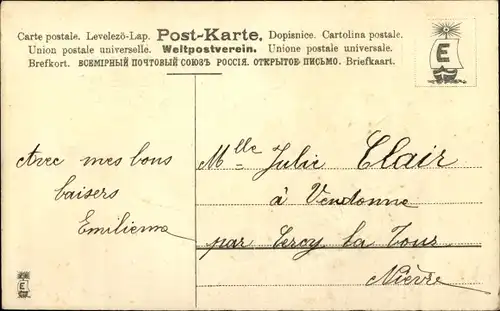 Carte postale. Levelező-Lap. Post-Karte. Dopisnice. Cartolina postale.
Union postale universelle. Weltpostverein. Unione postale universale.
Brefkort. ВСЕМІРНЫЙ ПОЧТОВЫЙ СОЮЗЪ РОССІЯ. ОТКРЫТОЕ ПИСЬМО. Briefkaart.
E
Avec mes bons
baisers
Emilienne
Mlle Julie Clair
à Vendonne
par Cercy la Tour
Nièvre
E